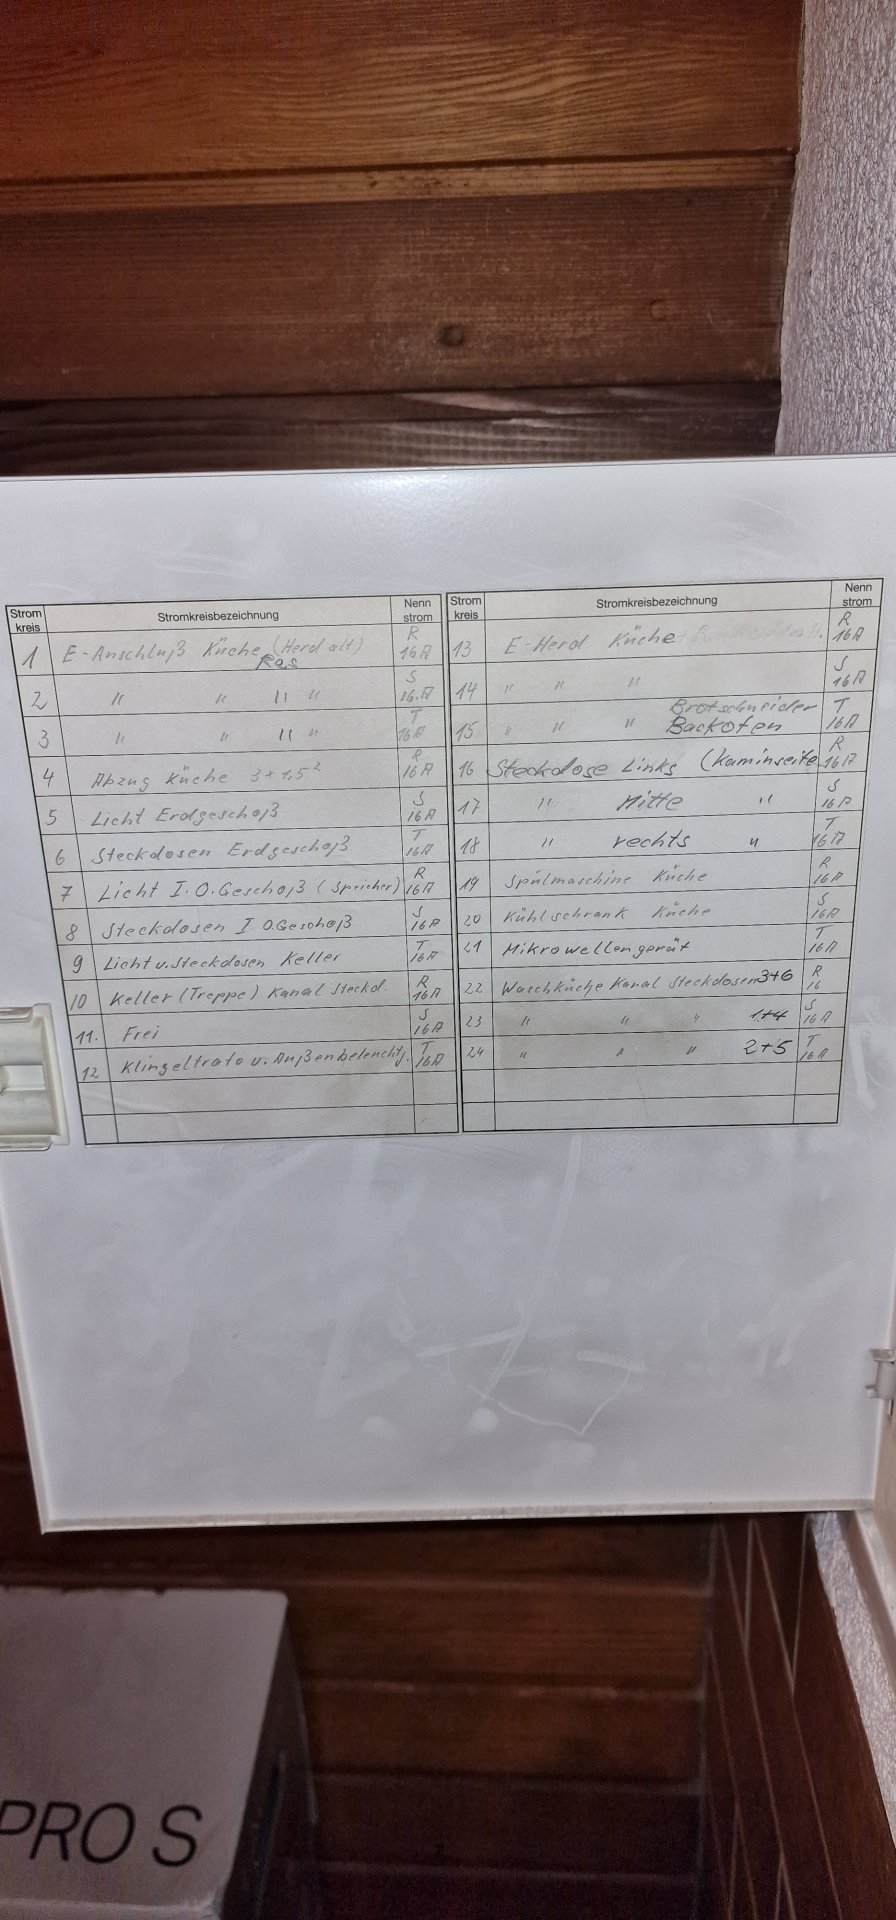 Strom kreis Stromkreisbezeichnung Nenn strom
1 E-Anschluß Küche (Herd alt) R 16A
2 " " " " S 16A
3 " " " " T 16A
4 Abzug Küche 3 x 1,5² R 16A
5 Licht Erdgeschoß S 16A
6 Steckdosen Erdgeschoß T 16A
7 Licht I. O.Geschoß (Speicher) R 16A
8 Steckdosen I. O.Geschoß S 16A
9 Licht u. Steckdosen Keller T 16A
10 Keller (Treppe) Kanal Steckd. R 16A
11. Frei S 16A
12 Klingeltrafo u. Außenbeleuchtg. T 16A
Strom kreis Stromkreisbezeichnung Nenn strom
13 E-Herd Küche R 16A
14 " " " S 16A
15 " " " Brotschneider Backofen T 16A
16 Steckdose Links (Kaminseite R 16A
17 " Mitte " S 16A
18 " rechts " T 16A
19 Spülmaschine Küche R 16A
20 Kühlschrank Küche S 16A
21 Mikrowellengerät T 16A
22 Waschküche Kanal Steckdosen 3+6 R 16
23 " " " 1+4 S 16A
24 " " " 2+5 T 16A
PRO S